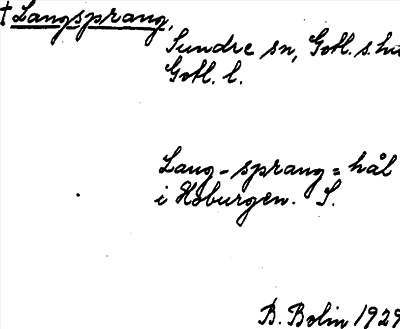 † Langsprang,
Sundre sn, Gotl. s. hä
Gotl. l.
Lang-sprang = hål
i Hoburgen. S.
B. Bolin 1929